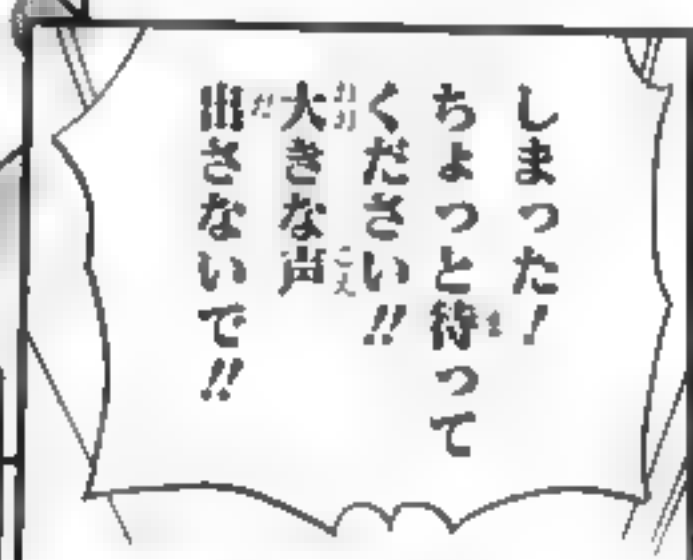 しまった！
ちょっと待って
ください!!
大きな声
出さないで!!